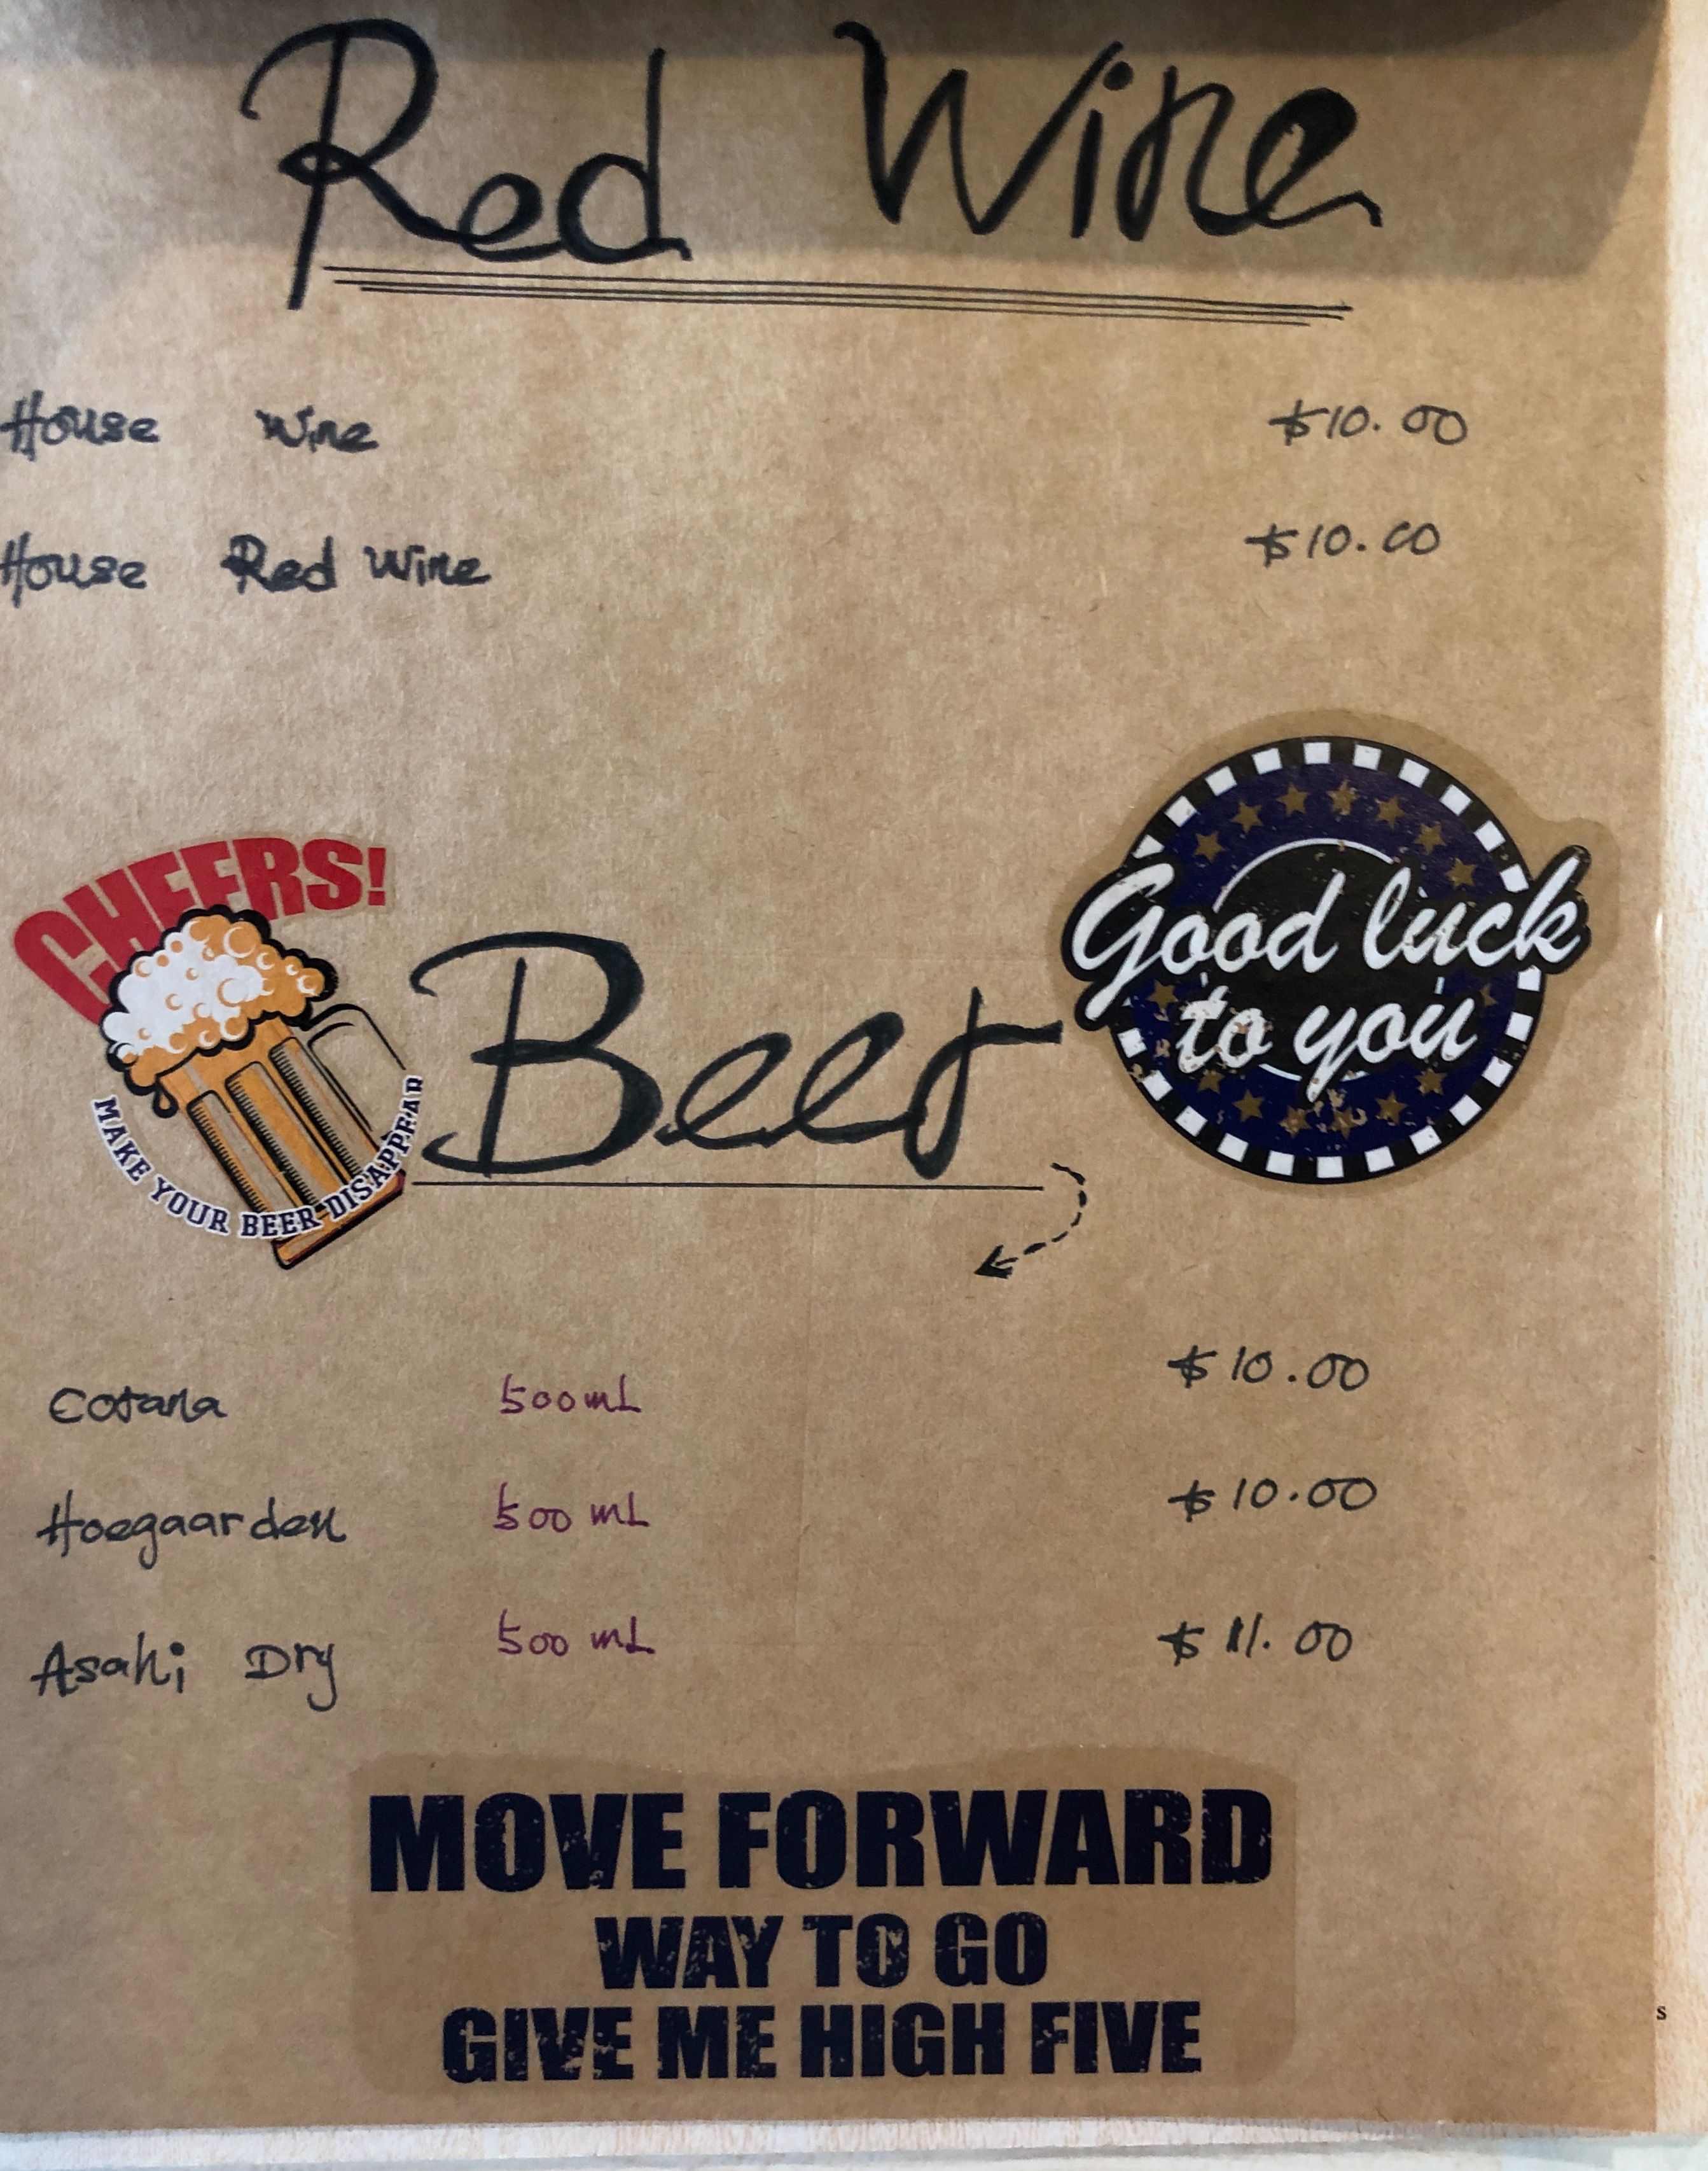 Red Wine
House Wine $10.00
House Red Wine $10.00
CHEERS!
MAKE YOUR BEER DISAPPEAR
Beer
Good luck
to you
Cotana 500mL $10.00
Hoegaarden 500 mL $10.00
Asahi Dry 500 mL $11.00
MOVE FORWARD
WAY TO GO
GIVE ME HIGH FIVE
s